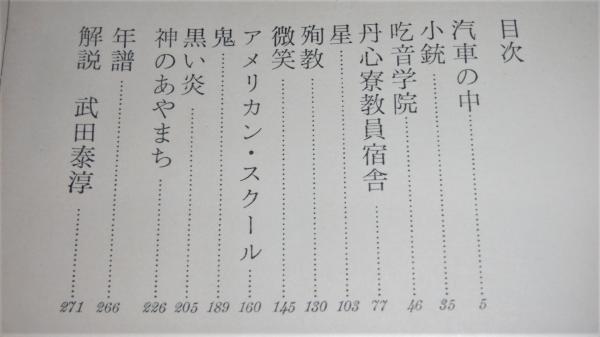 目次
汽車の中 5
小銃 35
吃音学院 46
丹心寮教員宿舎 77
星 103
殉教 130
微笑 145
アメリカン・スクール 160
鬼 189
黒い炎 205
神のあやまち 226
年譜 266
解説 武田泰淳 271